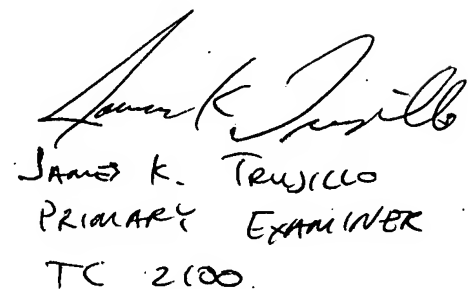 James K. Trujillo
JAMES K. TRUJILLO
PRIMARY EXAMINER
TC 2100